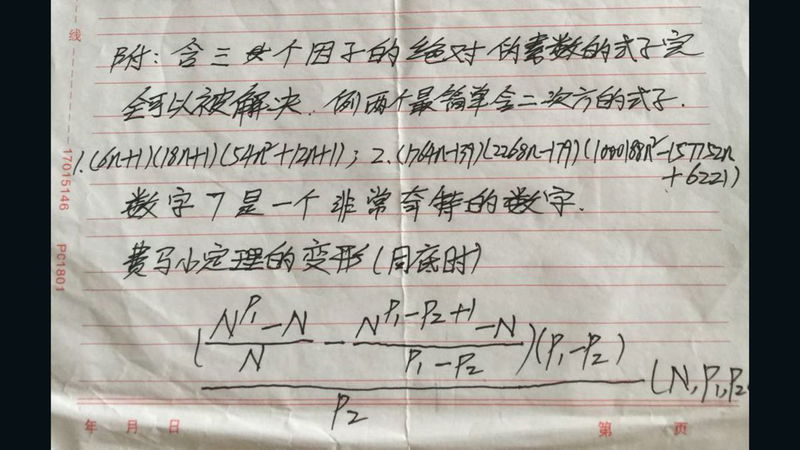 附:含三个因子的绝对伪素数的式子完
全可以被解决.例两个最简单含二次方的式子.
1.(6n+1)(18n+1)(54n²+12n+1);2.(1764n-139)(2268n-179)(1000188n²-157752n
+6221)
数字7是一个非常奇特的数字.
费马小定理的变形(同底时)
((N^P₁-N)/N-(N^(P₁-P₂+1)-N)/(P₁-P₂))(P₁-P₂)/P₂ (N,P₁,P₂
线
17015146
PC1801
年 月 日
第 页